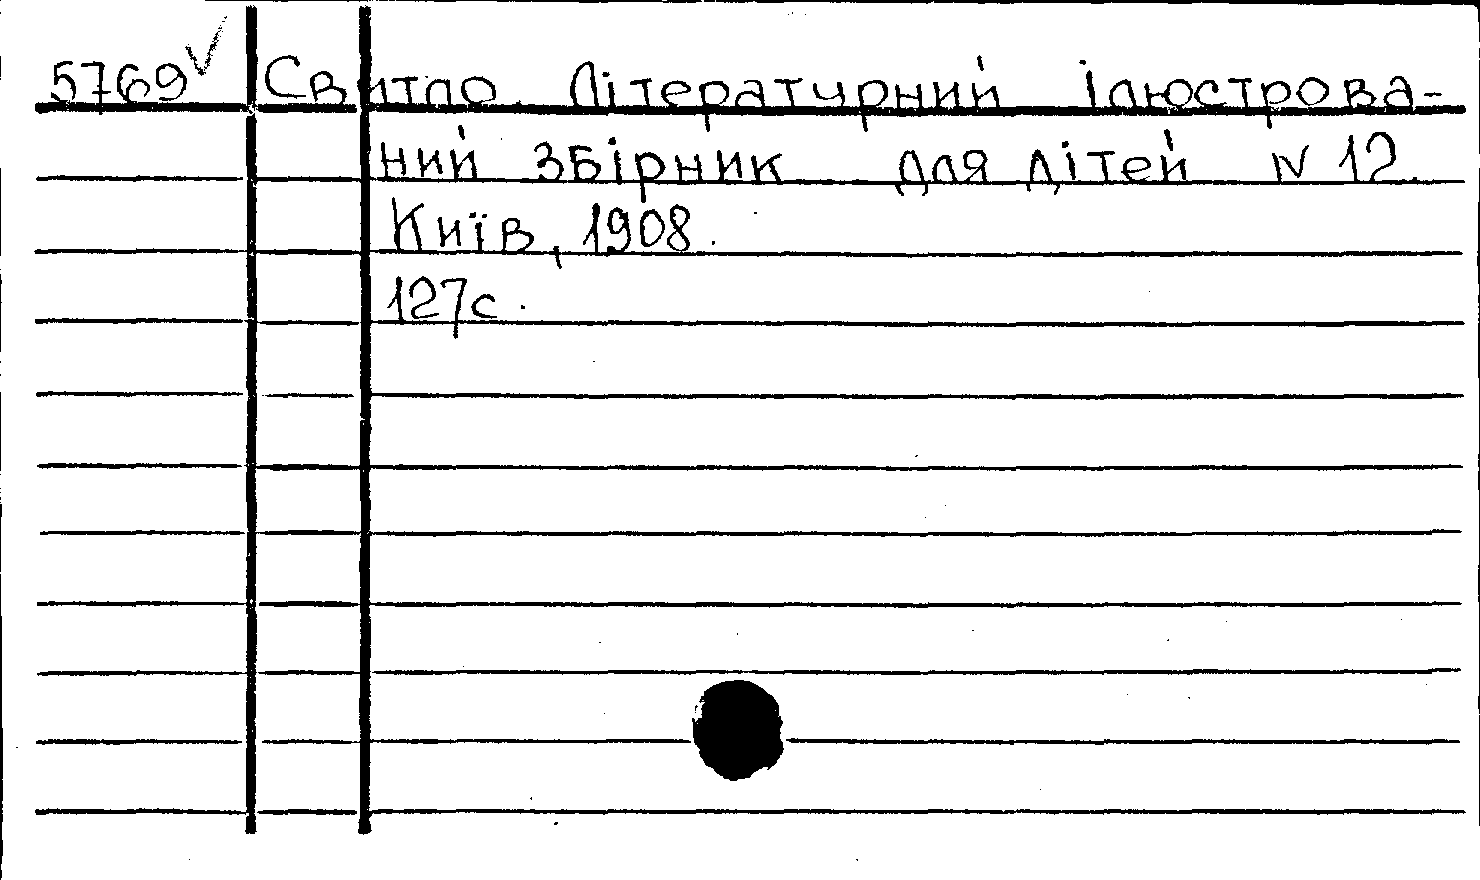 5769 Свитло. Літературний ілюстрова-
ний збірник для дітей N 12.
Київ, 1908.
127с.